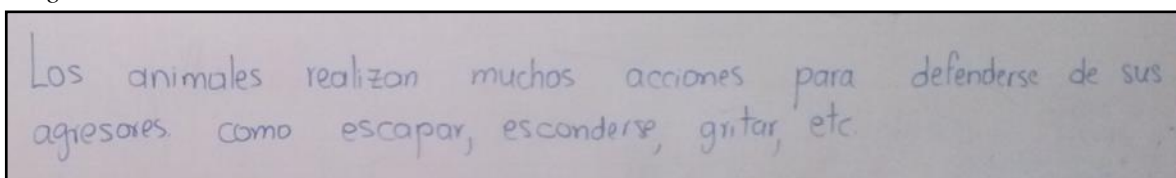 Los animales realizan muchos acciones para defenderse de sus
agresores. como escapar, esconderse, gritar, etc.